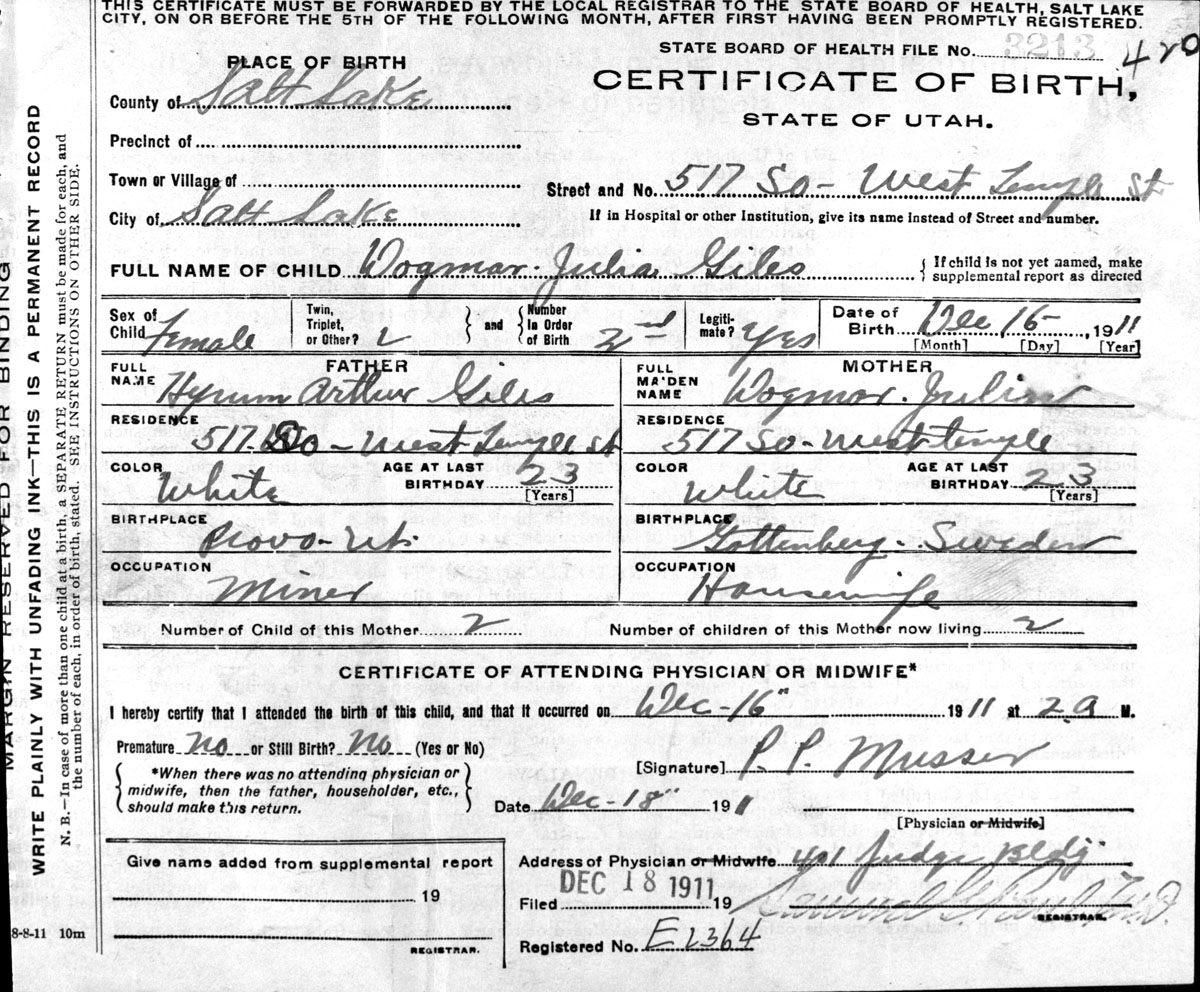 THIS CERTIFICATE MUST BE FORWARDED BY THE LOCAL REGISTRAR TO THE STATE BOARD OF HEALTH, SALT LAKE
CITY, ON OR BEFORE THE 5TH OF THE FOLLOWING MONTH, AFTER FIRST HAVING BEEN PROMPTLY REGISTERED.
STATE BOARD OF HEALTH FILE No. 3213 420
PLACE OF BIRTH
CERTIFICATE OF BIRTH,
County of Salt Lake
STATE OF UTAH.
Precinct of
Town or Village of
Street and No. 517 So - West Temple St
City of Salt Lake
If in Hospital or other Institution, give its name instead of Street and number.
FULL NAME OF CHILD Dogmar. Julia Giles
{ If child is not yet named, make supplemental report as directed
Sex of Child Female
Twin, Triplet, or Other? 2
and
Number In Order of Birth 2nd
Legiti-mate? Yes
Date of Birth Dec 16 1911
[Month] [Day] [Year]
FATHER
FULL NAME Hyrum Arthur Giles
MOTHER
FULL MAIDEN NAME Dogmar. Julian
RESIDENCE 517 So - West Temple st
RESIDENCE 517 So - West temple
COLOR White
AGE AT LAST BIRTHDAY 23
[Years]
COLOR White
AGE AT LAST BIRTHDAY 23
[Years]
BIRTHPLACE Provo - Ut.
BIRTHPLACE Gottenberg - Sweden
OCCUPATION Miner
OCCUPATION Housewife
Number of Child of this Mother 2
Number of children of this Mother now living 2
CERTIFICATE OF ATTENDING PHYSICIAN OR MIDWIFE*
I hereby certify that I attended the birth of this child, and that it occurred on Dec - 16" 1911 at 2 a M.
Premature no or Still Birth? no (Yes or No)
*When there was no attending physician or
midwife, then the father, householder, etc.,
should make this return.
[Signature] P. P. Musser
Date Dec - 18" 1911
[Physician or Midwife]
Give name added from supplemental report
19
REGISTRAR.
Address of Physician or Midwife 401 Judge Bldg
DEC 18 1911
Filed 19
REGISTRAR.
Registered No. E 2364
MARGIN RESERVED FOR BINDING
WRITE PLAINLY WITH UNFADING INK—THIS IS A PERMANENT RECORD
N. B.—In case of more than one child at a birth, a SEPARATE RETURN must be made for each, and
the number of each, in order of birth, stated. SEE INSTRUCTIONS ON OTHER SIDE.
8-8-11 10m